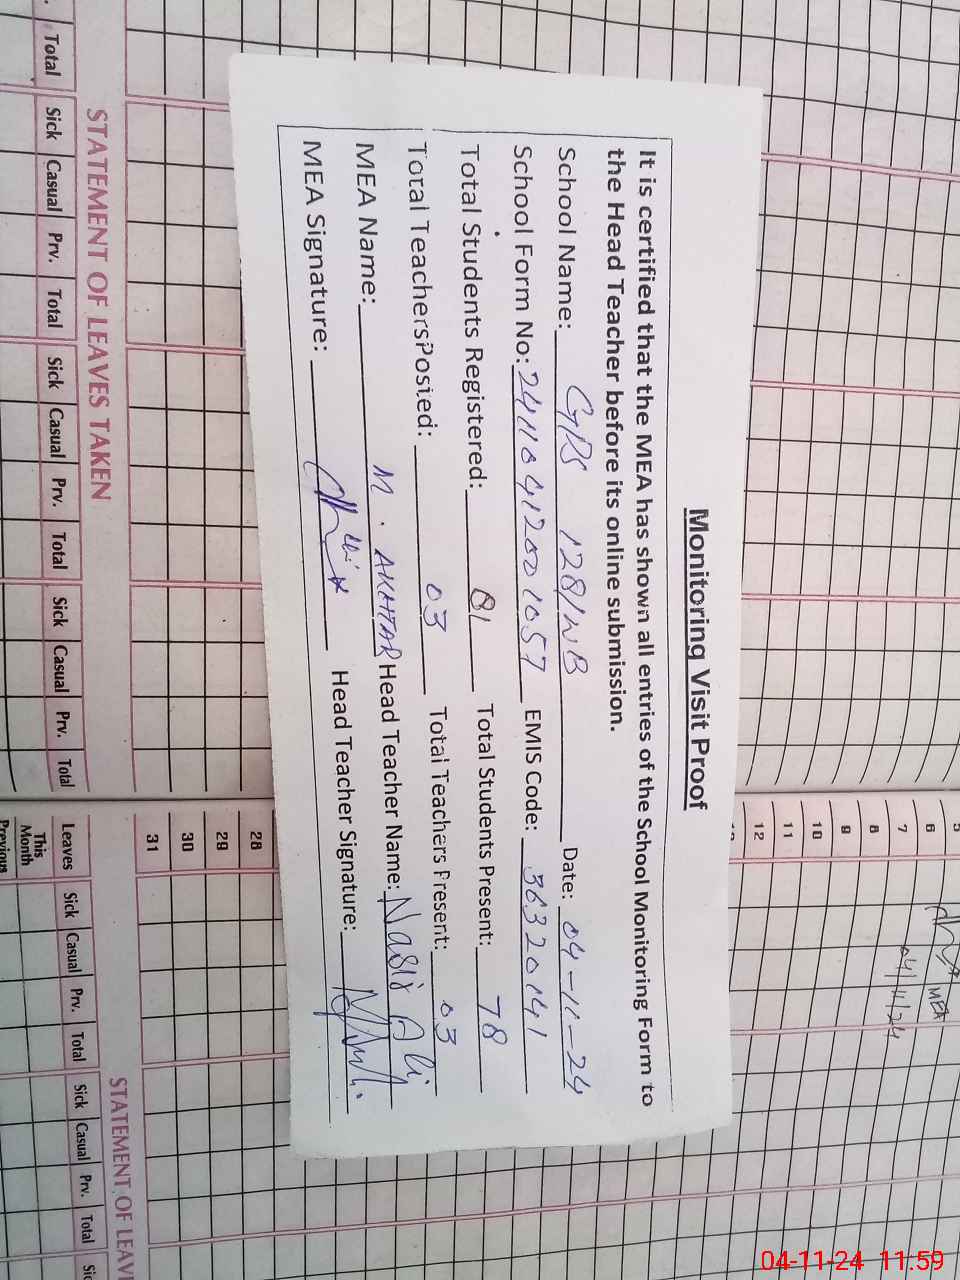 Monitoring Visit Proof
It is certified that the MEA has shown all entries of the School Monitoring Form to
the Head Teacher before its online submission.
School Name: GPS 128/WB Date: 04-11-24
School Form No: 24110412001057 EMIS Code: 36320141
Total Students Registered: 81 Total Students Present: 78
Total Teachers Posted: 03 Total Teachers Present: 03
MEA Name: M. AKHTAR Head Teacher Name: Nasir Ali
MEA Signature: Head Teacher Signature:
Total Sick Casual Prv. Total Sick Casual Prv. Total Sick Casual Prv. Total
STATEMENT OF LEAVES TAKEN
5
6
7
8
9
10
11
12
28
29
30
31
MEA
04/11/24
Leaves Sick Casual Prv. Total Sick Casual Prv. Total
This
Month
Previous
STATEMENT OF LEAV
04-11-24 11:59